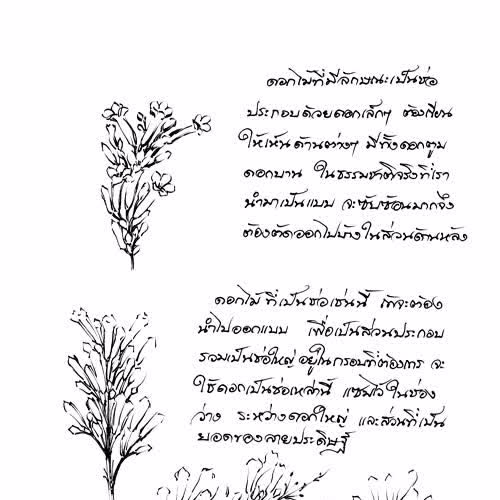 ดอกไม้ที่มีลักษณะเป็นช่อ
ประกอบด้วยดอกเล็กๆ ต้องเขียน
ให้เห็นด้านต่างๆ มีทั้งดอกตูม
ดอกบาน ในธรรมชาติจริงที่เรา
นำมาเป็นแบบ จะซับซ้อนมากจึง
ต้องตัดออกไปบ้างในส่วนด้านหลัง
ดอกไม้ ที่เป็นช่อเช่นนี้ ถ้าจะต้อง
นำไปออกแบบ เพื่อเป็นส่วนประกอบ
รวมเป็นช่อใหญ่ อยู่ในกรอบที่ต้องการ จะ
ใช้ดอกเป็นช่อเหล่านี้ แซมไว้ในช่อง
ว่าง ระหว่างดอกใหญ่ และส่วนที่เป็น
ยอดของลายประดิษฐ์